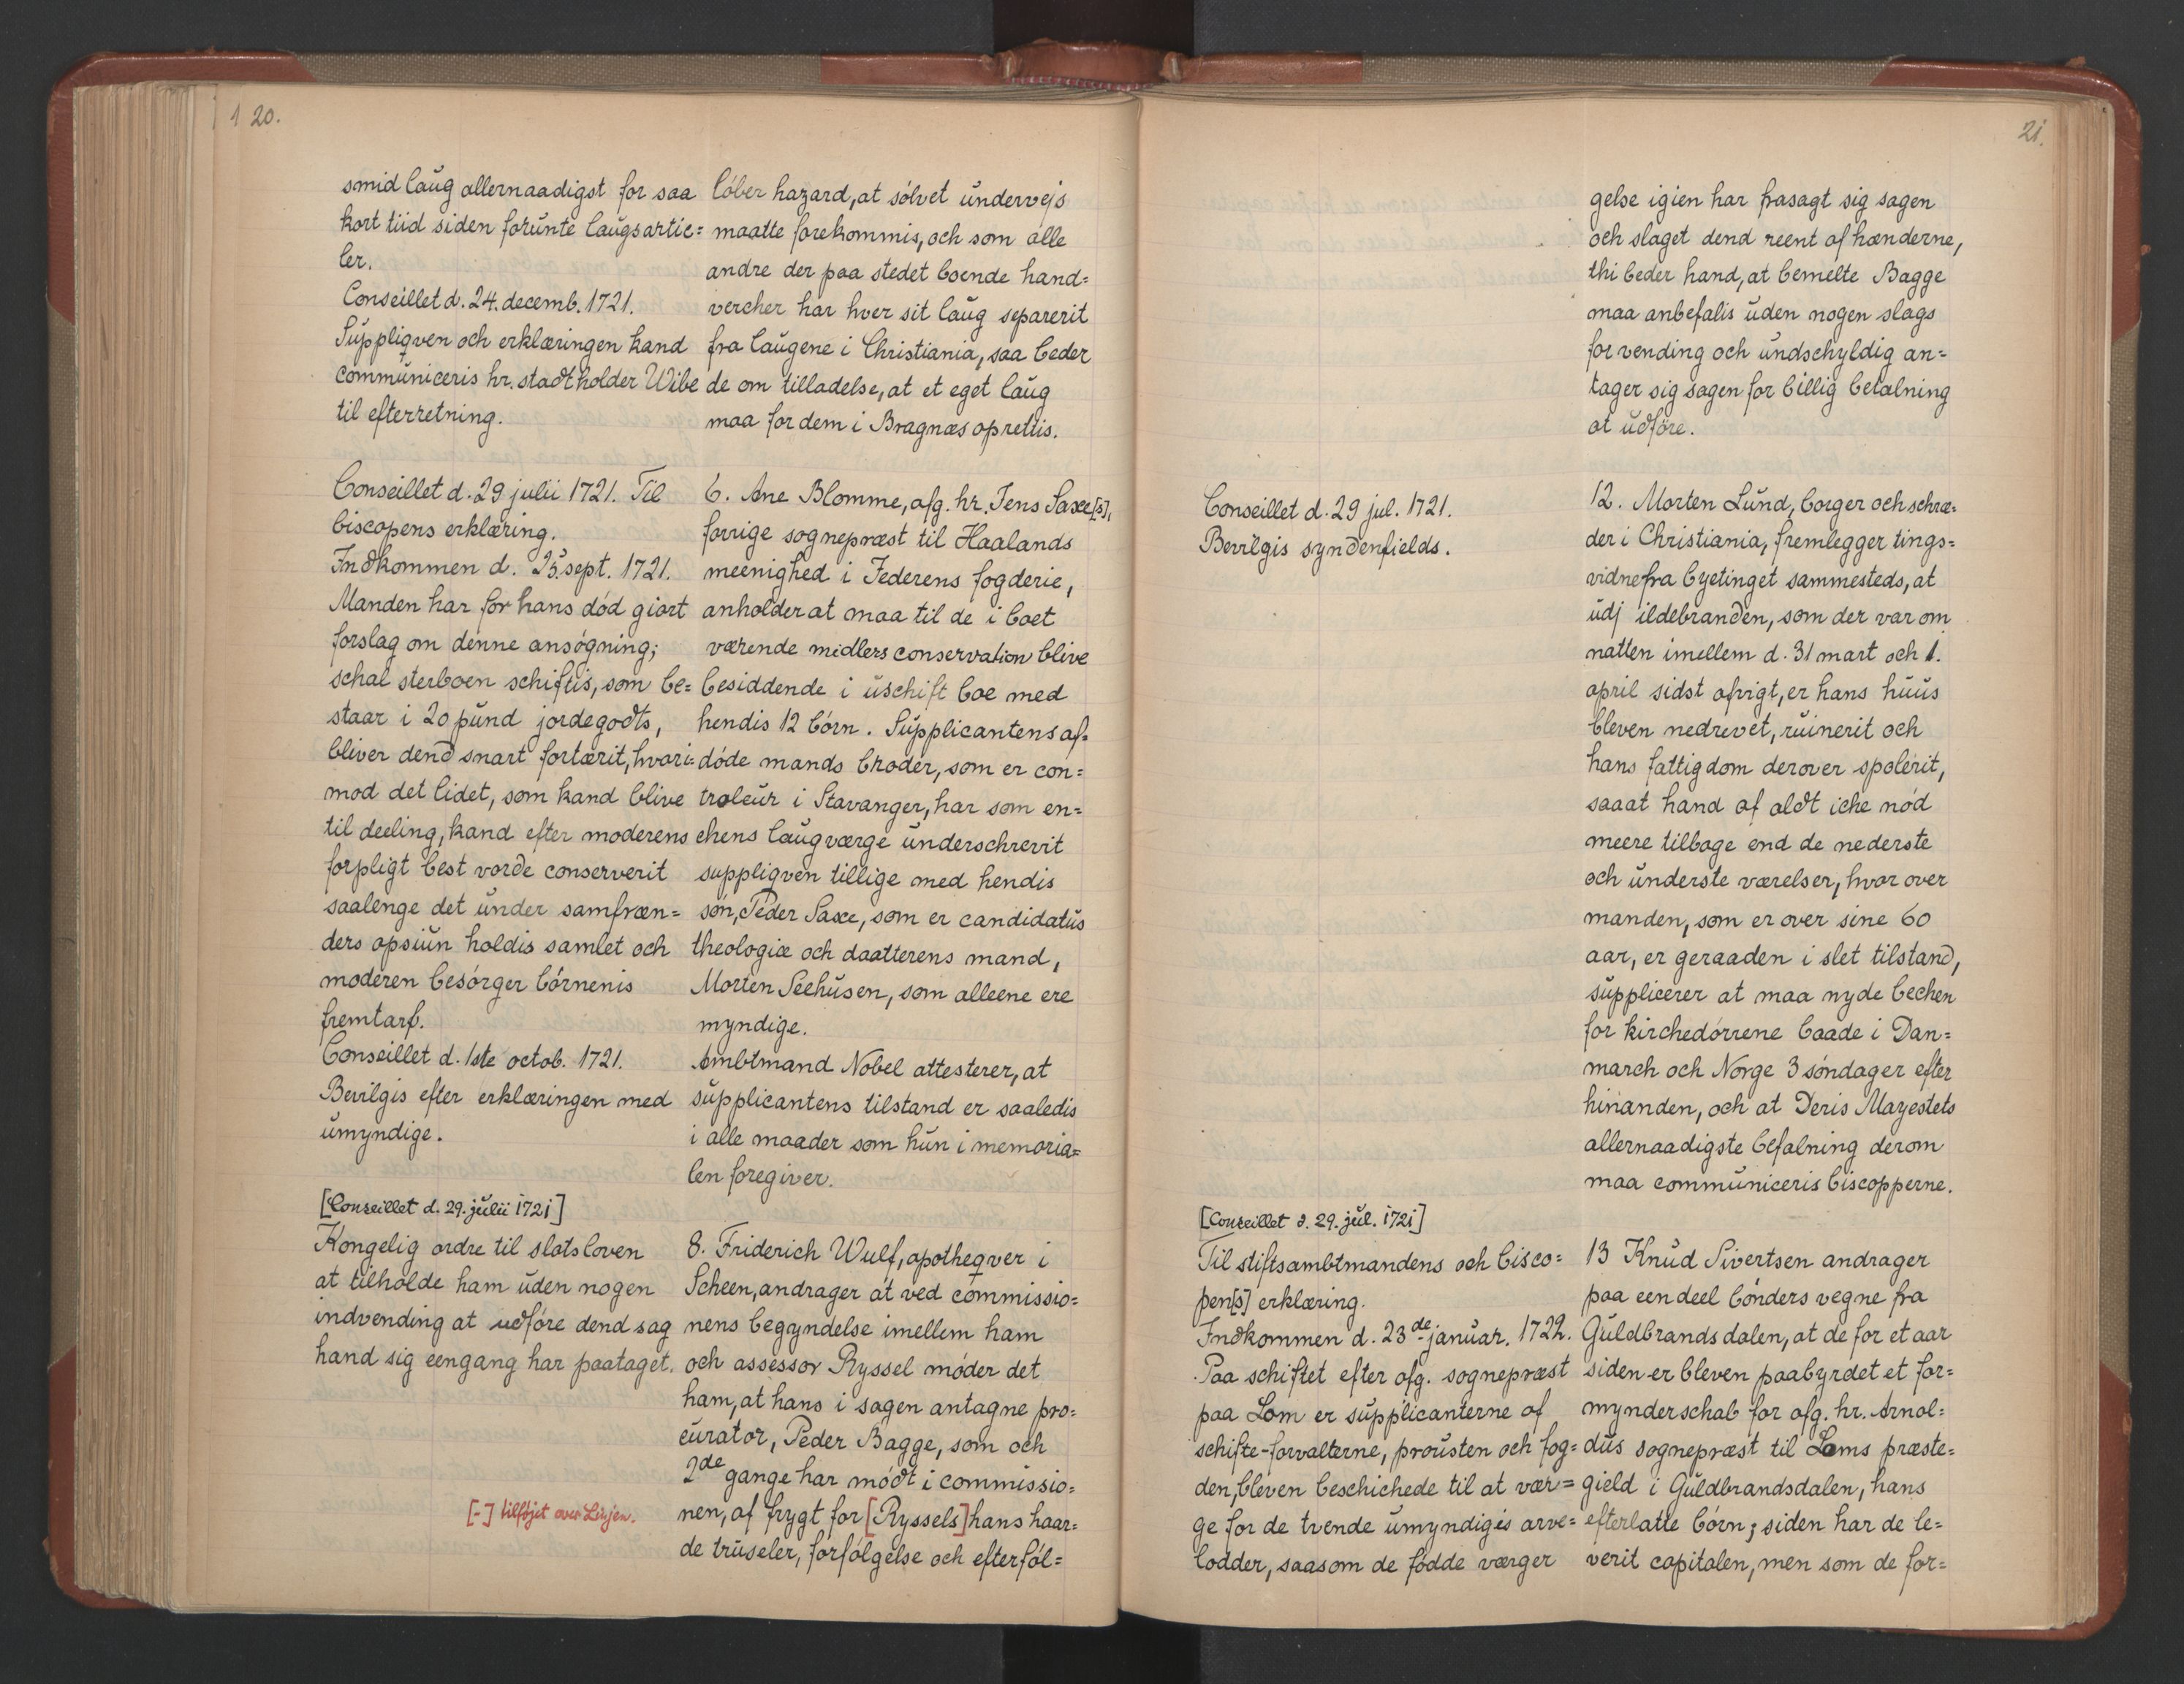 1 20.
smid laug allernaadigst for saa
kort tiid siden forunte laugsartic=
ler.
Conseillet d. 24. decemb. 1721.
Suppliqven och erklæringen kand
communiceris hr. stadtholder Wibe
til efterretning.
løber hazard, at sølvet undervejs
maatte forekommis, och som alle
andre der paa stedet boende hand=
vercher har hver sit laug separerit
fra laugene i Christiania, saa beder
de om tilladelse, at et eget laug
maa for dem i Bragnæs oprettis.
Conseillet d. 29 julii 1721. Til
biscopens erklæring.
Indkommen d. 25. sept. 1721.
Manden har for hans død giort
forslag om denne ansøgning;
schal sterboen schiftis, som be=
staar i 20 pund jordegodts,
bliver dend snart fortærit, hvori=
mod det lidet, som kand blive
til deeling, kand efter moderens
forpligt best vorde conserverit
saalenge det under samfræn=
ders opsiun holdis samlet och
moderen besørger børnenis
fremtarf.
Conseillet d. 1ste octob. 1721.
Bevilgis efter erklæringen med
umyndige.
6. Ane Blomme, afg. hr. Jens Saxe[s],
forrige sognepræst til Haalands
meenighed i Jederens fogderie,
anholder at maa til de i boet
værende midlers conservation blive
besiddende i uschift boe med
hendis 12 børn. Supplicantens af=
døde mands broder, som er con=
troleur i Stavanger, har som en=
chens laugværge underschrevit
suppliqven tillige med hendis
søn, Peder Saxe, som er candidatus
theologiæ och daatterens mand,
Morten Seehusen, som alleene ere
myndige.
Ambtmand Nobel attesterer, at
supplicantens tilstand er saaledis
i alle maader som hun i memoria=
len foregiver.
[Conseillet d. 29. julii 1721]
Kongelig ordre til slotsloven
at tilholde ham uden nogen
indvending at udføre dend sag
hand sig eengang har paataget.
8. Friderich Wulf, apotheqver i
Scheen, andrager at ved commissio=
nens begyndelse imellem ham
och assessor Ryssel møder det
ham, at hans i sagen antagne pro=
curator, Peder Bagge, som och
2de gange har mødt i commissio=
nen, af frygt for [Ryssels] hans haar=
de truseler, forfølgelse och efterføl=
[-] tilføjet over Linjen.
21.
gelse igien har frasagt sig sagen
och slaget dend reent af hænderne,
thi beder hand, at bemelte Bagge
maa anbefalis uden nogen slags
forvending och undschyldig an=
tager sig sagen for billig betalning
at udføre.
Conseillet d. 29 jul. 1721.
Bevilgis syndenfields.
12. Morten Lund, borger och schræ=
der i Christiania, fremlegger tings=
vidne fra byetinget sammesteds, at
udj ildebranden, som der var om
natten imellem d. 31 mart och 1.
april sidst afvigt, er hans huus
bleven nedrevet, ruinerit och
hans fattigdom derover spolerit,
saaat hand af aldt iche nød
meere tilbage end de nederste
och underste værelser, hvor over
manden, som er over sine 60
aar, er geraaden i slet tilstand,
supplicerer at maa nyde bechen
for kirchedørrene baade i Dan=
march och Norge 3 søndager efter
hinanden, och at Deris Mayestets
allernaadigste befalning derom
maa communiceris biscopperne.
[Conseillet d. 29. jul. 1721]
Til stiftsambtmandens och bisco=
pen[s] erklæring.
Indkommen d. 23de januar. 1722.
Paa schiftet efter afg. sognepræst
paa Lom er supplicanterne af
schifte-forvalterne, prousten och fog=
den, bleven beschichede til at vær=
ge for de tvende umyndigis arve=
lodder, saasom de fødde værger
13 Knud Sivertsen andrager
paa een deel bønders vegne fra
Guldbrandsdalen, at de for et aar
siden er bleven paabyrdet et for=
mynderschab for afg. hr. Arnol=
dus sognepræst til Loms præste=
gield i Guldbrandsdalen, hans
efterlatte børn; siden har de le=
verit capitalen, men som de for=